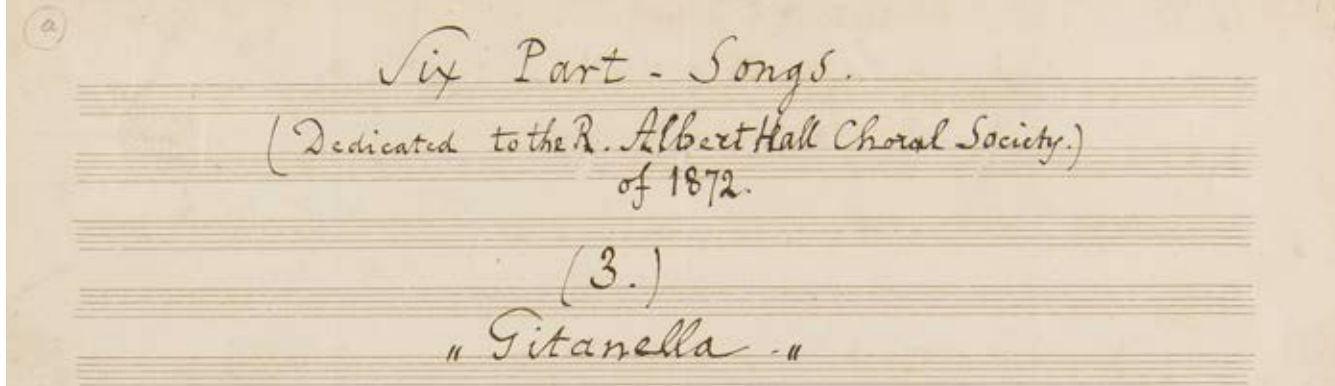 a
Six Part - Songs.
(Dedicated to the R. Albert Hall Choral Society.)
of 1872.
(3.)
„ Gitanella . "